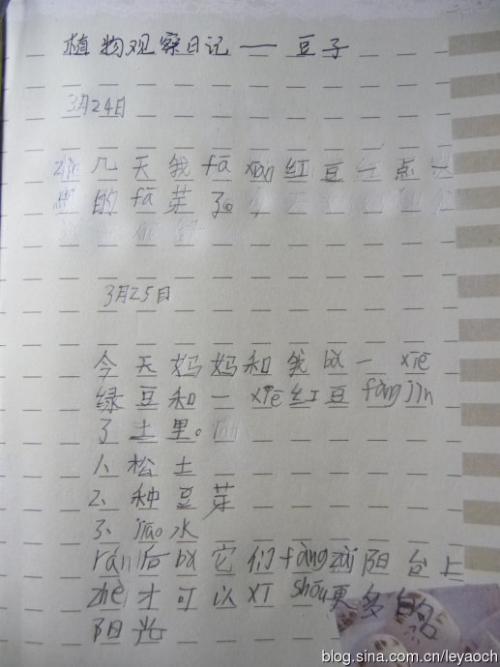 植物观察日记——豆子
3月24日
几天我fā xiàn红豆一点
的fā芽了。
3月25日
今天妈妈和我bǎ一xiē
绿豆和一xiē红豆fàng jìn
了土里。
1、松土
2、种豆芽
3、jiāo水
rán后bǎ它们fàng zài阳台上
zhè才可以xī shōu更多的
阳光
blog.sina.com.cn/leyaoch